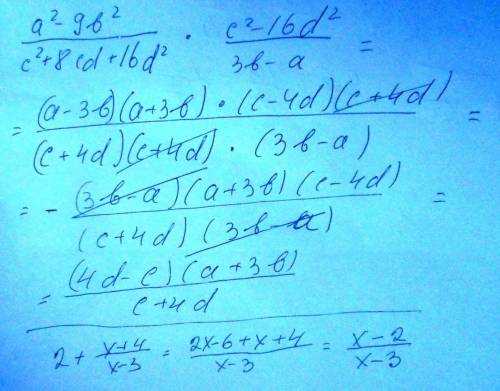 (a² - 9b²)/(c² + 8cd + 16d²) · (c² - 16d²)/(3b - a) =
= ((a - 3b)(a + 3b) · (c - 4d)(c + 4d))/((c + 4d)(c + 4d) · (3b - a)) =
= - ((3b - a)(a + 3b)(c - 4d))/((c + 4d)(3b - a)) =
= ((4d - c)(a + 3b))/(c + 4d)
2 + (x+4)/(x-3) = (2x-6+x+4)/(x-3) = (x-2)/(x-3)